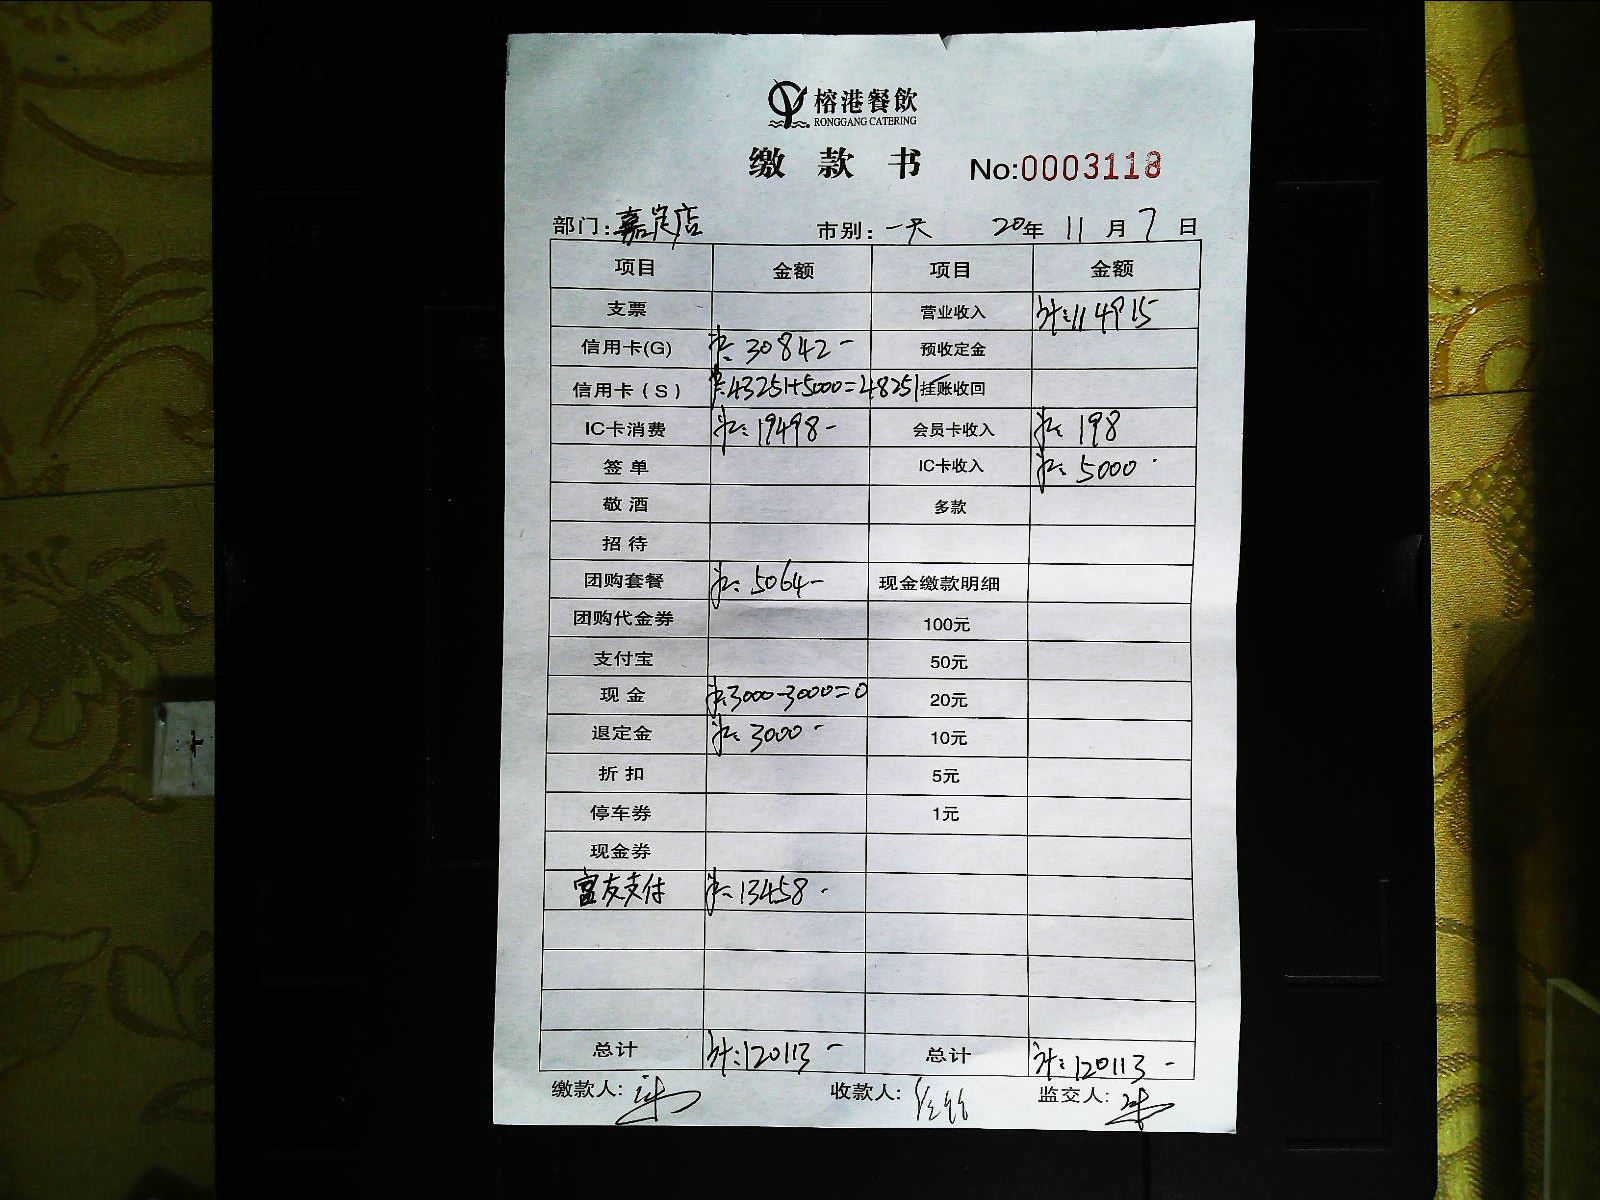 榕港餐飲
RONGGANG CATERING
缴款书 No:0003118
部门:嘉定店 市别:一天 20年11月7日
项目 金额 项目 金额
支票 营业收入 计:114915
信用卡(G) 30842- 预收定金
信用卡(S) 43251+5000=48251 挂账收回
IC卡消费 19498- 会员卡收入 198
签单 IC卡收入 5000
敬酒 多款
招待
团购套餐 5064- 现金缴款明细
团购代金券 100元
支付宝 50元
现金 3000-3000=0 20元
退定金 3000- 10元
折扣 5元
停车券 1元
现金券
富友支付 13458-
总计 计:120113- 总计 计:120113-
缴款人: 收款人: 监交人: